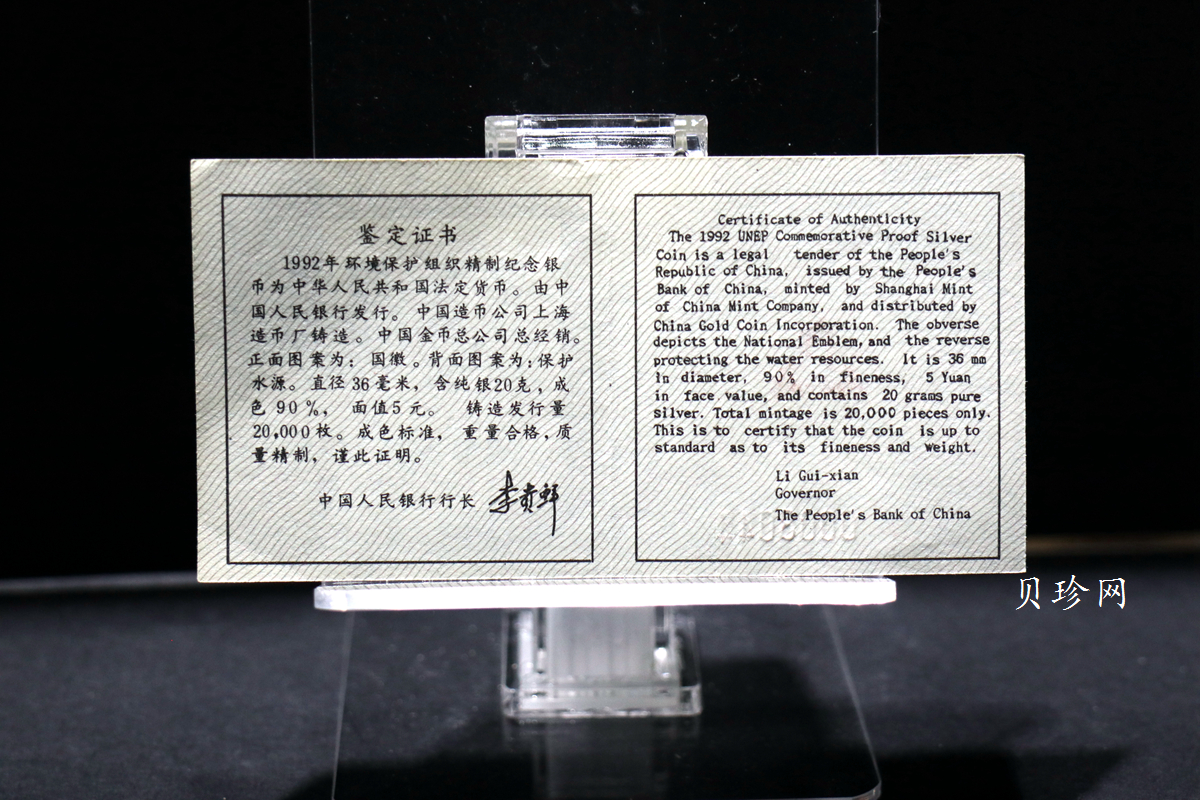 鉴定证书
1992年环境保护组织精制纪念银
币为中华人民共和国法定货币。由中
国人民银行发行。中国造币公司上海
造币厂铸造。中国金币总公司总经销。
正面图案为：国徽。背面图案为：保护
水源。直径36毫米，含纯银20克，成
色90%，面值5元。铸造发行量
20,000枚。成色标准，重量合格，质
量精制，谨此证明。
中国人民银行行长
Certificate of Authenticity
The 1992 UNEP Commemorative Proof Silver
Coin is a legal tender of the People's
Republic of China, issued by the People's
Bank of China, minted by Shanghai Mint
of China Mint Company, and distributed by
China Gold Coin Incorporation. The obverse
depicts the National Emblem, and the reverse
protecting the water resources. It is 36 mm
in diameter, 90% in fineness, 5 Yuan
in face value, and contains 20 grams pure
silver. Total mintage is 20,000 pieces only.
This is to certify that the coin is up to
standard as to its fineness and weight.
Li Gui-xian
Governor
The People's Bank of China
贝珍网